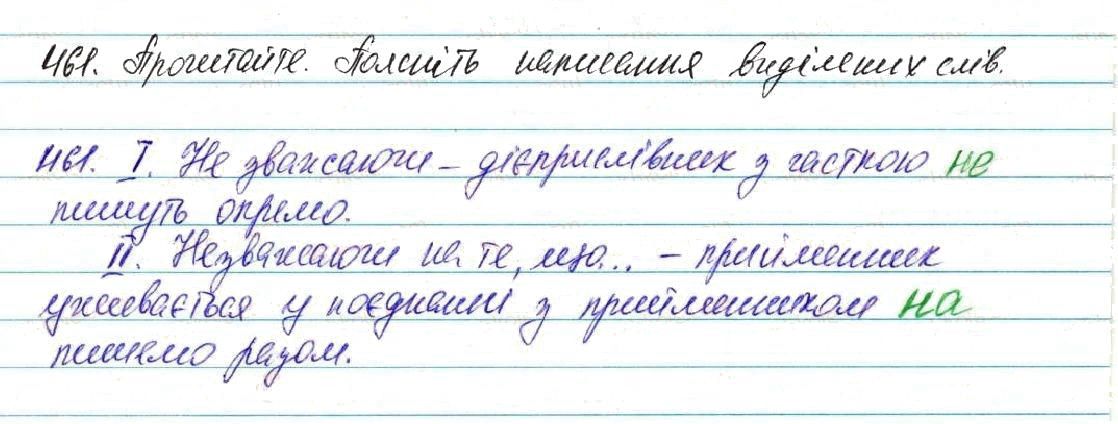 461. Прочитайте. Поясніть написання виділених слів.
461. I. Не зважаючи – дієприслівник з часткою не
пишуть окремо.
II. Незважаючи на те, що... – прийменник
уживається у поєднанні з прийменником на
пишемо разом.